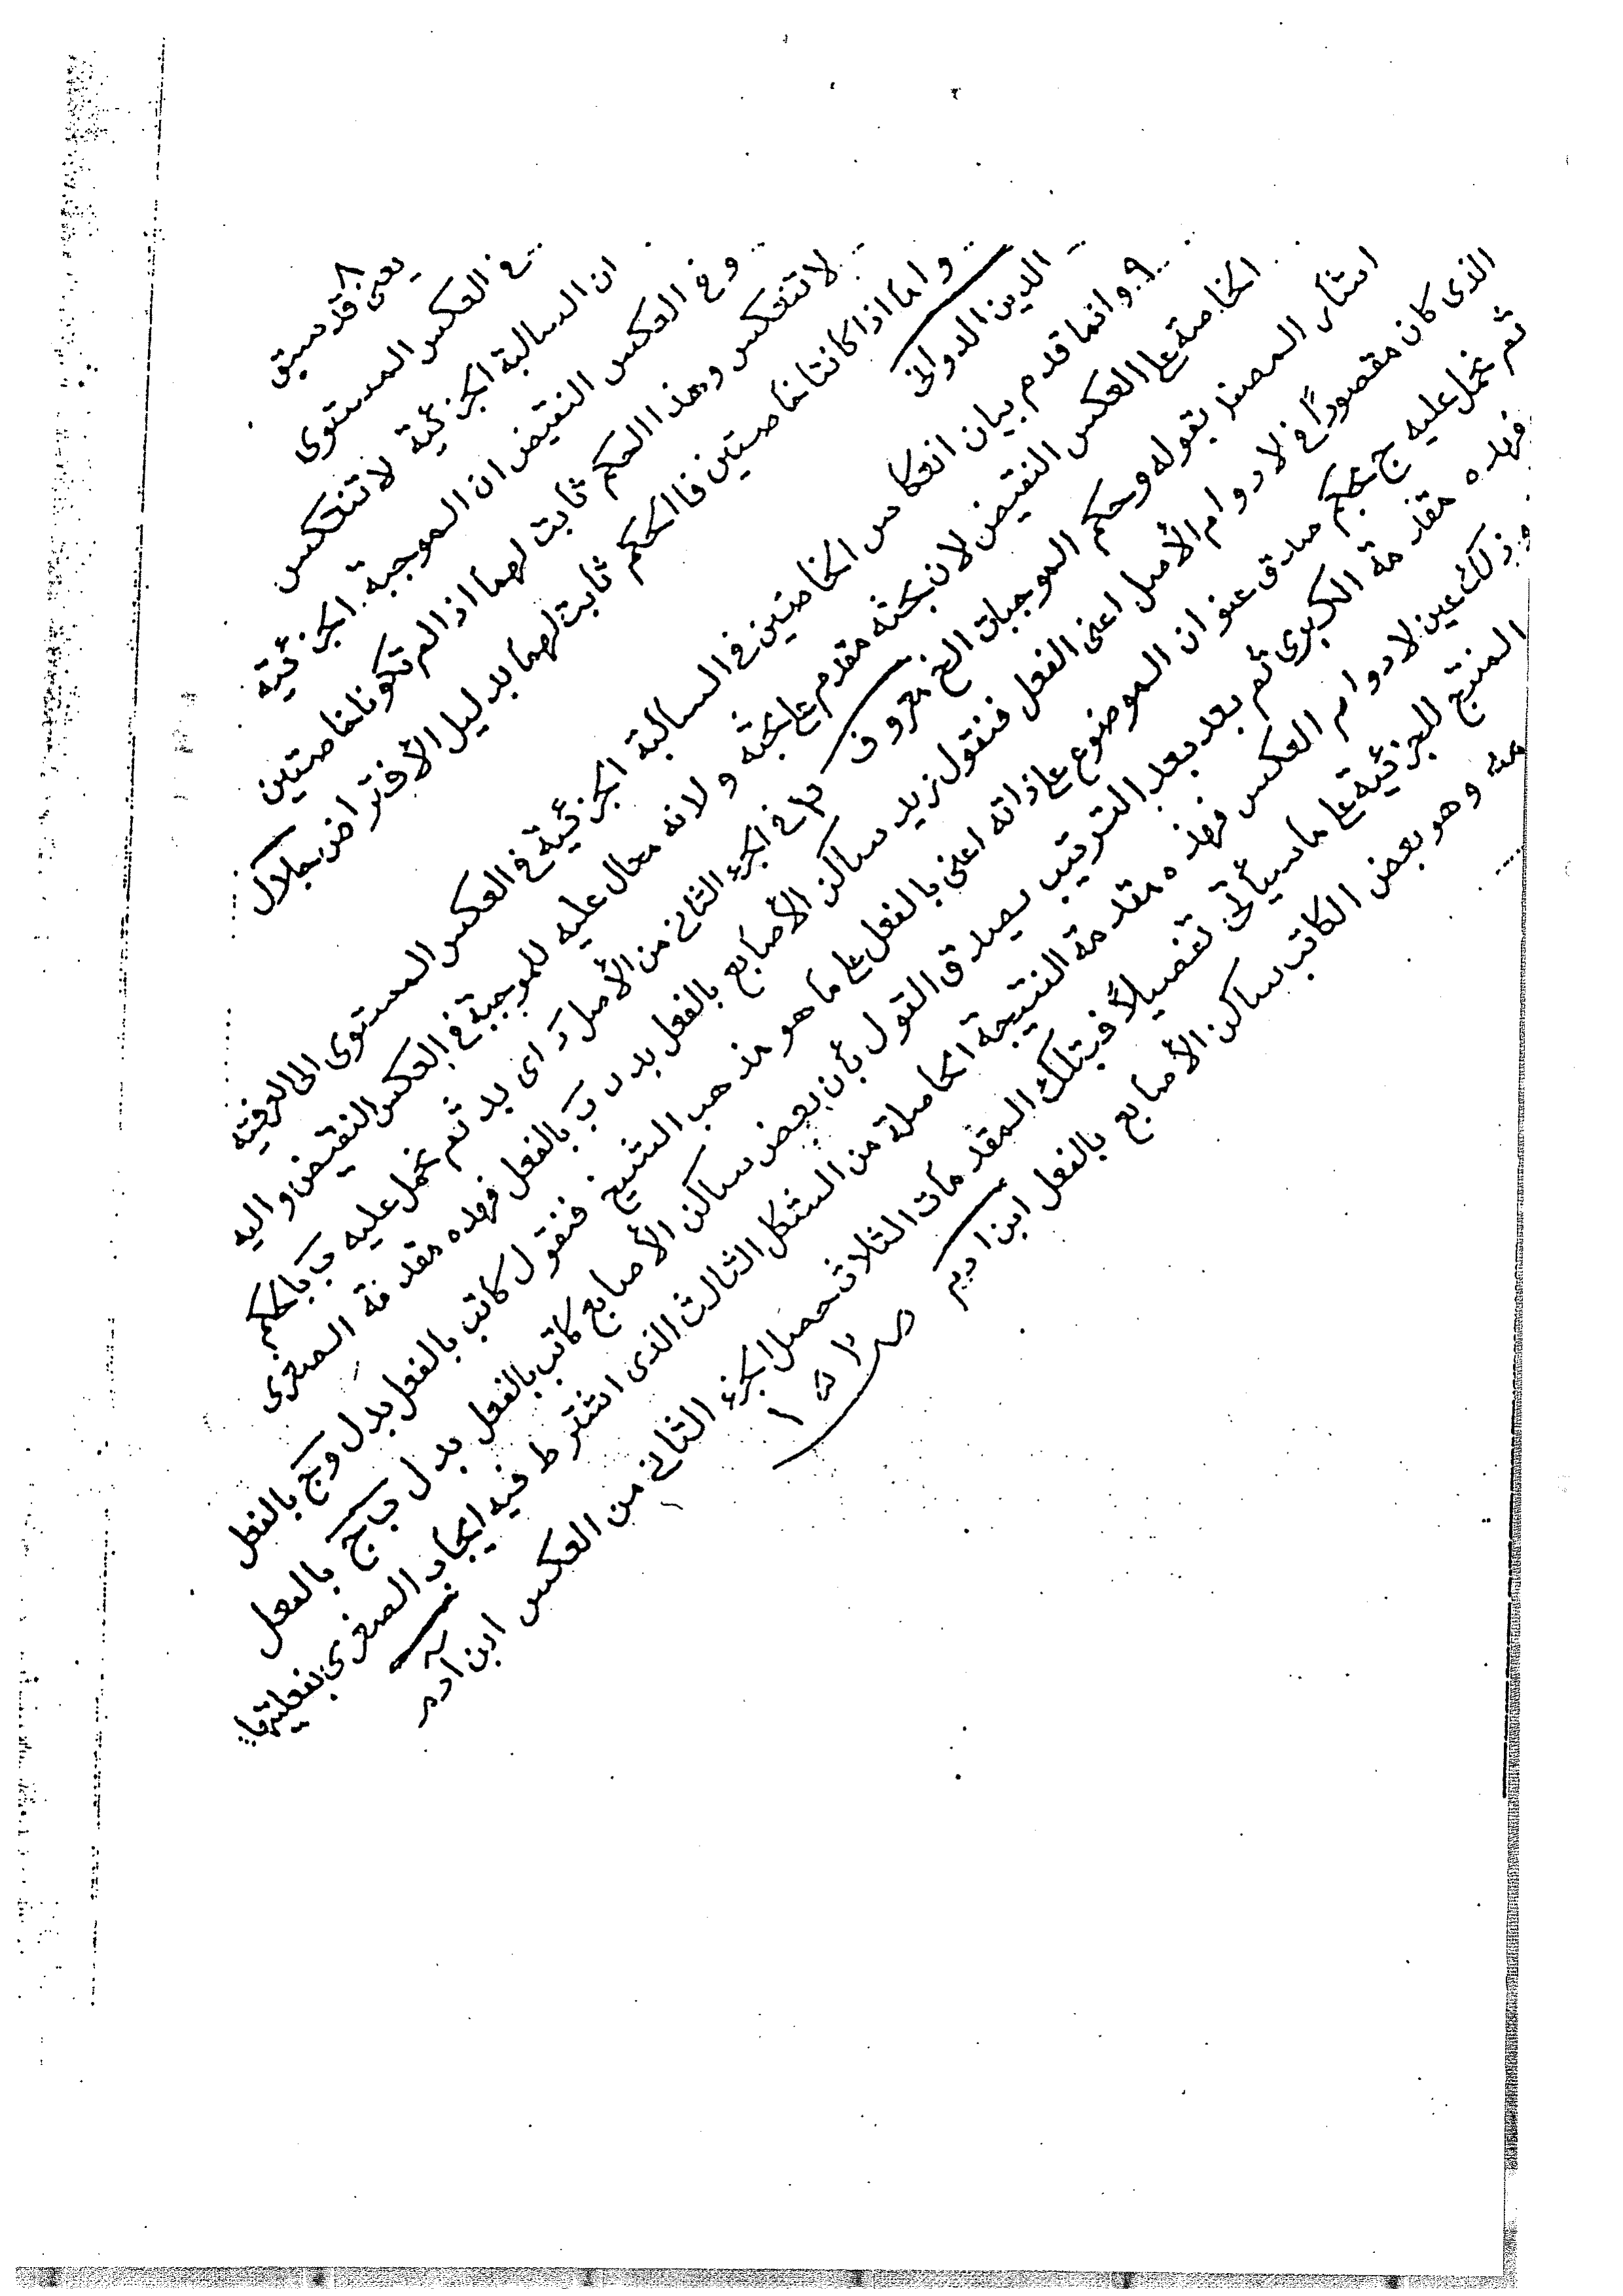 ٨ يعنى قد سبق
فى العكس المستوى
ان السالبة الجزئية لا تنعكس
وفى العكس النقيض ان الموجبة الجزئية
لا تنعكس وهذا الحكم ثابت لهما اذا لم تكونا خاصتين
واما اذا كانتا خاصتين فا الحكم ثابت لهما بدليل الأفتراض جلال
الدين الدوانى
٩ وانما قدم بيان انعكاس الخاصتين فى السالبة الجزئية فى العكس المستوى الى العرفية
الخاصة على العكس النقيض لان بحثه مقدم على بحثه و لانه محال عليه للموجبة فى العكس النقيض واليه
اشار المصنف بقوله وحكم الموجبات الخ معروف فى الجزء الثانى من الأصل دَ اى بد ثم نحمل عليه بَ بالحكم
الذى كان مقصوداً فى لا دوام الأصل اعنى الفعل فنقول زيد ساكن الأصابع بالفعل بدل بَ بالفعل فهذه مقدمة الصغرى
ثم نحمل عليه ج بحكم صدق عنوان الموضوع على ذاته اعنى بالفعل على ما هو مذهب الشيخ فنقول كاتب بالفعل بدل وجَ بالفعل
فهذه مقدمة الكبرى ثم بعد بعد الترتيب يصدق القول بأن بعض ساكن الأصابع كاتب بالفعل بدل بَ جَ بالفعل
وذلك عين لا دوام العكس فهذه مقدمة النتيجة الحاصلة من الشكل الثالث الذى اشترط فيه ايجاب الصغرى بفعليتها
المنتج للجزئية على ما سيأتى تفصيلاً فبتلك المقدمات الثلاث حصل الجزء الثانى من العكس ابن آدم
منه وهو بعض الكاتب ساكن الأصابع بالفعل ابن ادم